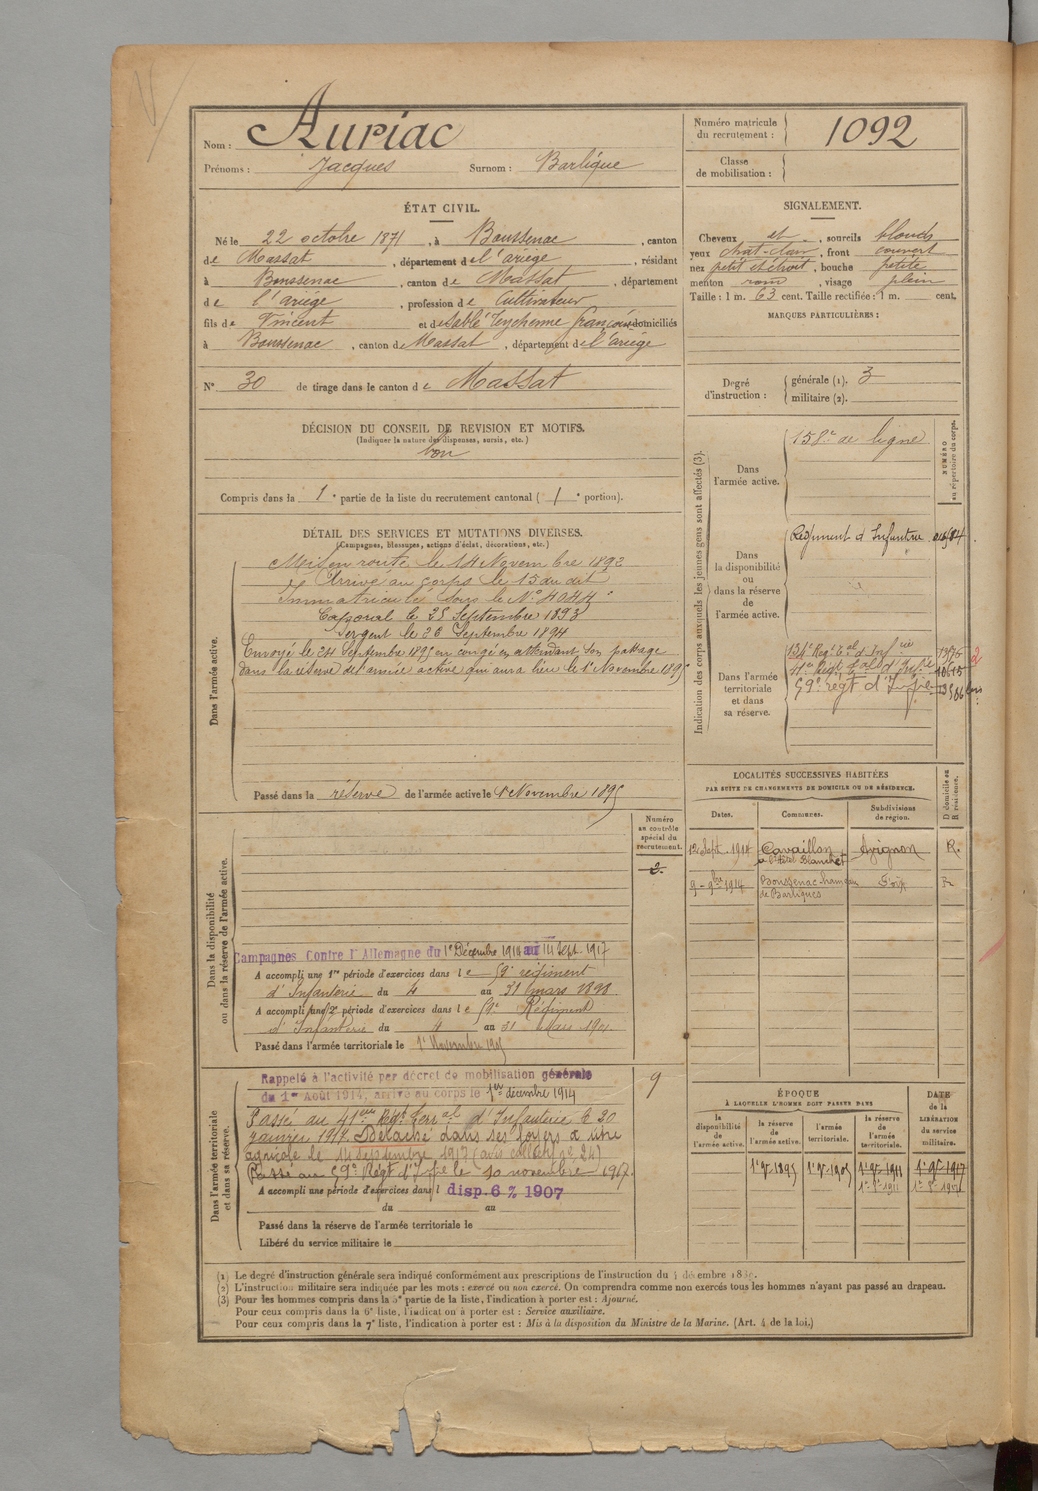 Nom : Auriac
Prénoms : Jacques Surnom : Barlique
Numéro matricule du recrutement : 1092
Classe de mobilisation :
ÉTAT CIVIL.
Né le 22 octobre 1871, à Boussenac, canton
de Massat, département de l'ariège, résidant
à Boussenac, canton de Massat, département
de l'ariège, profession de Cultivateur
fils de Vincent et de Sablé Teychenne françoise domiciliés
à Boussenac, canton de Massat, département de l'ariège
N° 30 de tirage dans le canton de Massat
SIGNALEMENT.
Cheveux et, sourcils blonds
yeux chat-clair, front couvert
nez petit et étroit, bouche petite
menton rond, visage plein
Taille : 1 m. 63 cent. Taille rectifiée : 1 m. cent.
MARQUES PARTICULIÈRES :
Degré d'instruction : générale (1). 3
militaire (2).
DÉCISION DU CONSEIL DE REVISION ET MOTIFS.
(Indiquer la nature des dispenses, sursis, etc.)
bon
Compris dans la 1e partie de la liste du recrutement cantonal (1e portion).
DÉTAIL DES SERVICES ET MUTATIONS DIVERSES.
(Campagnes, blessures, actions d'éclat, décorations, etc.)
Dans l'armée active.
Mis en route le 14 Novembre 1892
Arrivé au corps le 15 du dit
Immatriculé sous le N° 4044
Caporal le 25 Septembre 1893
Sergent le 26 Septembre 1894
Envoyé le 24 Septembre 1895 en congé en attendant son passage
dans la réserve de l'armée active qui aura lieu le 1er Novembre 1895
Passé dans la réserve de l'armée active le 1er Novembre 1895
Indication des corps auxquels les jeunes gens sont affectés (3).
NUMÉRO au répertoire du corps.
Dans l'armée active.
158e de ligne
Dans la disponibilité ou dans la réserve de l'armée active.
Régiment d'Infanterie
Dans l'armée territoriale et dans sa réserve.
134e Régt tal d'Infie
41e Régt tal d'Infie
59e régt d'Infie
2
LOCALITÉS SUCCESSIVES HABITÉES
PAR SUITE DE CHANGEMENTS DE DOMICILE OU DE RÉSIDENCE.
Dates. Communes. Subdivisions de région. D domicile ou R résidence.
12 Sept. 1914 Cavaillon, Hôtel Blanchet Avignon R.
9 - 9bre 1914 Boussenac hameau de Barliques Foix R
Numéro au contrôle spécial du recrutement.
Dans la disponibilité ou dans la réserve de l'armée active.
Campagnes Contre l'Allemagne du 1er Décembre 1914 au 14 Sept. 1917
A accompli une 1re période d'exercices dans le 59e régiment
d'Infanterie du 4 au 31 mars 1898
A accompli une 2e période d'exercices dans le 59e Régiment
d'Infanterie du 4 au 31 Mars 1901
Passé dans l'armée territoriale le 1er Novembre 1905
Dans l'armée territoriale et dans sa réserve.
Rappelé à l'activité par décret de mobilisation générale
du 1er Août 1914, arrivé au corps le 1er décembre 1914
9
Passé au 41eme Régt Terral d'Infanterie le 20
janvier 1917. Détaché dans ses foyers à titre
agricole le 14 Septembre 1917
Passé au 59e Régt d'Infie le 10 novembre 1917.
A accompli une période d'exercices dans l disp. 6 % 1907
du au
Passé dans la réserve de l'armée territoriale le
Libéré du service militaire le
ÉPOQUE
A LAQUELLE L'HOMME DOIT PASSER DANS
la disponibilité de l'armée active. la réserve de l'armée active. l'armée territoriale. la réserve de l'armée territoriale. DATE de la LIBÉRATION du service militaire.
1er 9e 1895 1er 9e 1905 1er 9e 1911 1er 9e 1917
(1) Le degré d'instruction générale sera indiqué conformément aux prescriptions de l'instruction du
(2) L'instruction militaire sera indiquée par les mots : exercé ou non exercé. On comprendra comme non exercés tous les hommes n'ayant pas passé au drapeau.
(3) Pour les hommes compris dans la 5e partie de la liste, l'indication à porter est : Ajourné.
Pour ceux compris dans la 6e liste, l'indication à porter est : Service auxiliaire.
Pour ceux compris dans la 7e liste, l'indication à porter est : Mis à la disposition du Ministre de la Marine. (Art. 4 de la loi.)